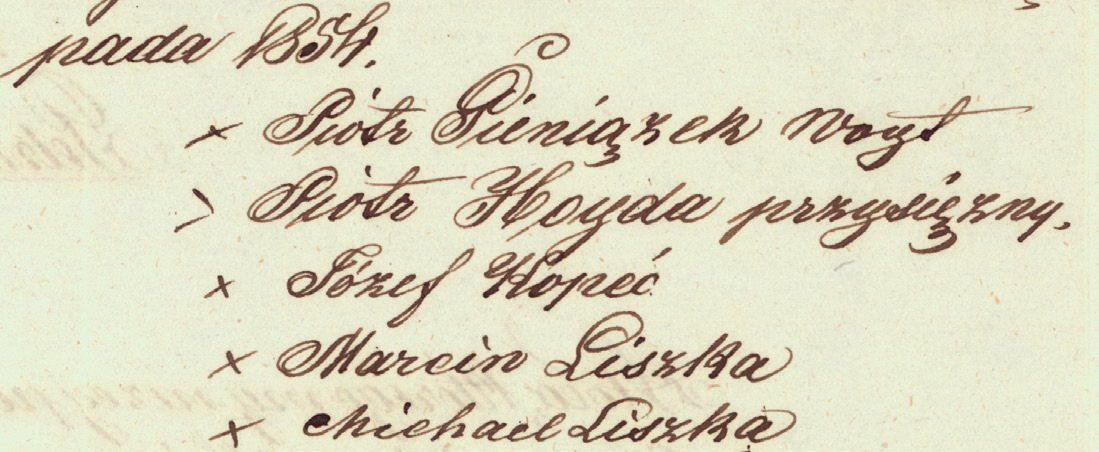 pada 1854.
× Piotr Pieniązek Woyt
> Piotr Hoyda przysięzny.
× Józef Kopeć
× Marcin Liszka
× Michael Liszka